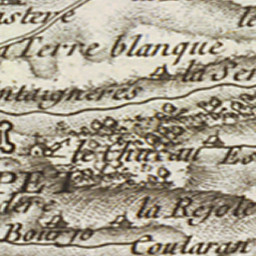 la Terre blanque
la Ser
ntaigneres
le Chateau Es
PET
la Rejole
Bourjo
Coularan